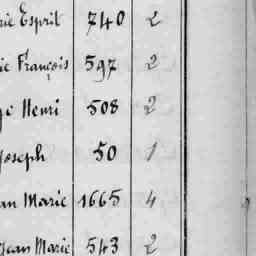 rie Esprit 740 2
ie François 597 2
ge Henri 508 2
Joseph 50 1
an Marie 1665 4
Jean Marie 543 2